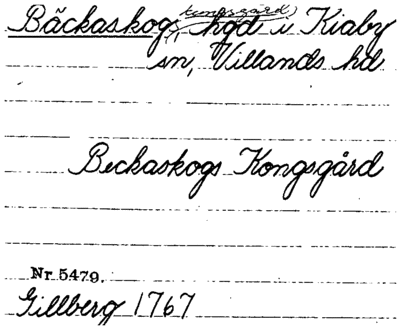 kungsgård)
Bäckaskog, hgd i Kiaby
sn, Villands hd
Beckaskogs Kongsgård
Nr 5479.
Gillberg 1767